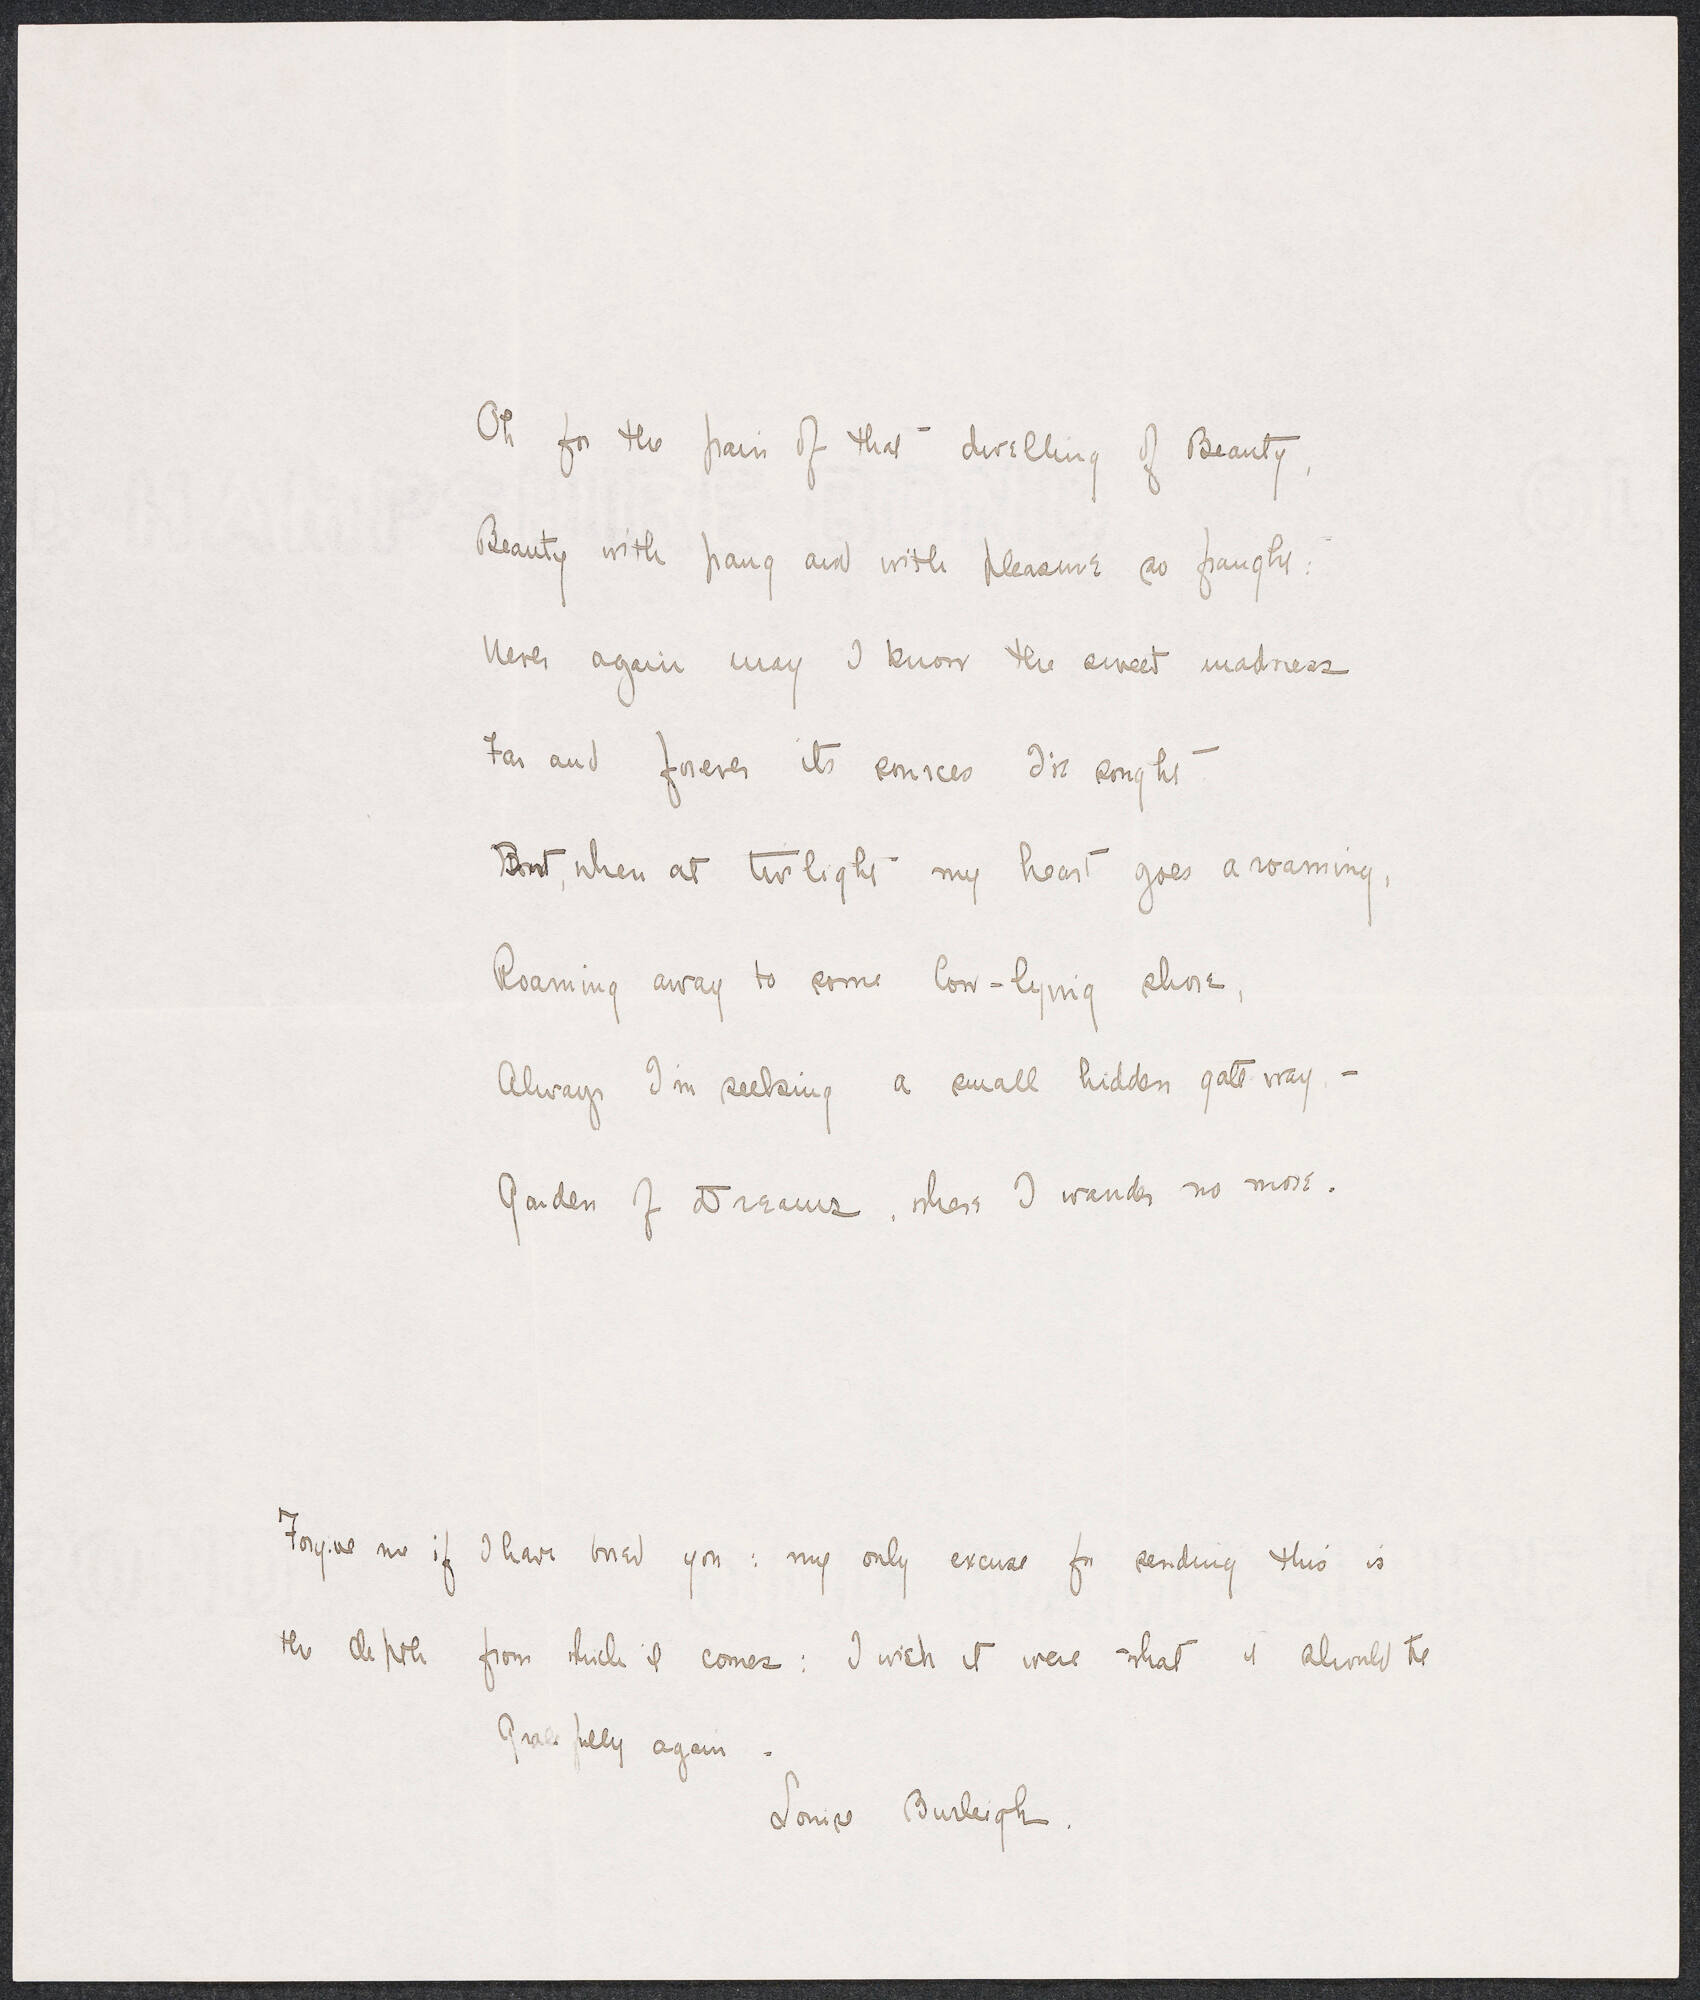 Oh for the pain of that dwelling of Beauty,
Beauty with pang and with pleasure so fraught:
Never again may I know the sweet madness
Far and forever its sources I've sought
But, when at twilight my heart goes a roaming,
Roaming away to some low-lying shore,
Always I'm seeking a small hidden gate way –
Garden of Dreams, where I wander no more.
Forgive me if I have bored you : my only excuse for sending this is
the depth from which it comes : I wish it were what it should be
Gratefully again –
Louise Burleigh.